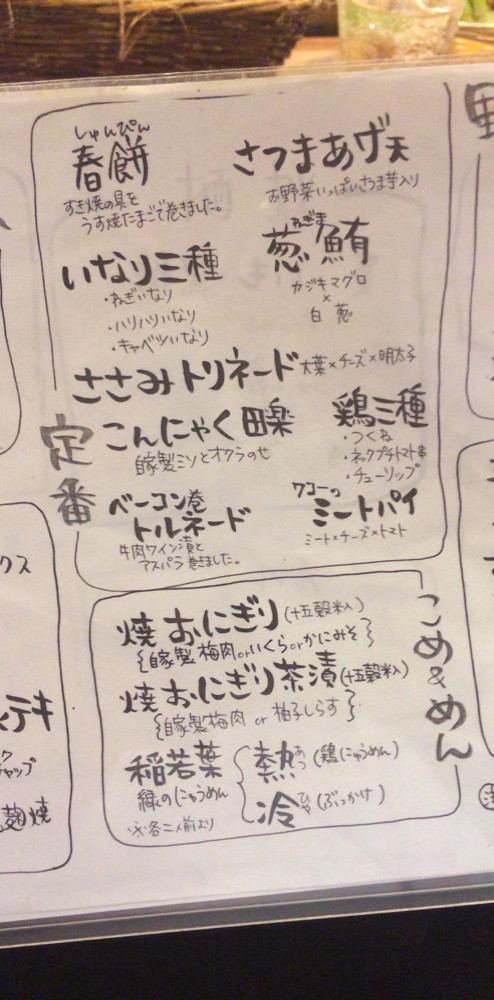 しゅんぴん
春餅
すき焼の具を
うす焼たまごで巻きました。
さつまあげ天
お野菜いっぱいさつま芋入り
いなり三種
・ねぎいなり
・ハリハリいなり
・キャベツいなり
ねぎま
葱鮪
カジキマグロ
×
白葱
ささみトリネード 大葉×チーズ×明太子
定番
こんにゃく田楽
自家製ミソとオクラのせ
鶏三種
・つくね
・ネックプチトマト串
・チューリップ
ベーコン巻
トルネード
牛肉ワイン漬と
アスパラ巻きました。
ワコーっ
ミートパイ
ミート×チーズ×トマト
こめ&めん
焼おにぎり(十五穀米入)
{自家製梅肉orいくらorかにみそ}
焼おにぎり茶漬(十五穀米入)
{自家製梅肉 or 柚子しらす}
稲若葉
緑のにゅうめん
※各二人前より
熱あつ(鶏にゅうめん)
冷ひや(ぶっかけ)
クス
ステキ
ック
チャップ
麹焼